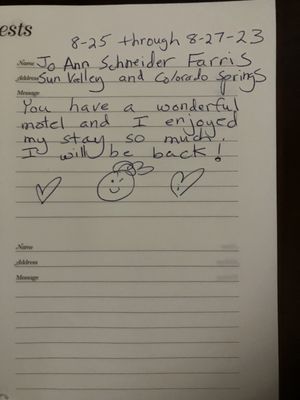 ests
8-25 through 8-27-23
Name Jo Ann Schneider Farris
Address Sun Valley and Colorado Springs
Message
You have a wonderful
motel and I enjoyed
my stay so much.
I will be back!
Name
Address
Message